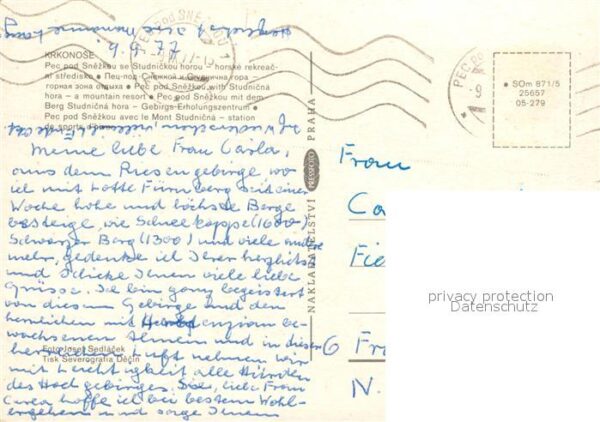 9.9.77
KRKONOŠE
Pec pod Sněžkou se Studničnou horou – horské rekreač-
ní středisko • Пец-под-Снежкой и Студнична гора –
горная зона отдыха • Pec pod Sněžkou with Studničná
hora – a mountain resort • Pec pod Sněžkou mit dem
Berg Studničná hora – Gebirgs-Erholungszentrum •
Pec pod Sněžkou avec le Mont Studničná – station
de sports
Meine liebe Frau Carla,
aus dem Riesengebirge, wo
ich mit Lotte Fürnberg seit einer
Woche hohe und höchste Berge
besteige, wie Schneekoppe (1600)
Schwarzer Berg (1300) und viele andre
mehr, gedenke ich Ihrer herzlichst
und schicke Ihnen viele liebe
Grüsse. Ich bin ganz begeistert
von diesem Gebirge und den
herrlichen mit Enzian be-
wachsenen Almen und in dieser
herrlichen Luft nehmen wir
mit Leichtigkeit alle Hürden
des Hochgebirges. Sie, liebe Frau
Carla hoffe ich bei bestem Wohl-
ergehen und sage Ihnen
Foto Josef Sedláček
Tisk Severografia Děčín
NAKLADATELSTVÍ PRESSFOTO PRAHA
PEC POD
9
SOm 871/5
25657
05-279
Frau
Ca
Fie
6 Fr
N.
privacy protection
Datenschutz